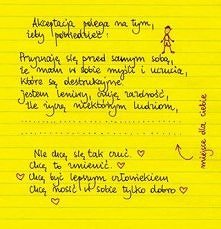 Akceptacja polega na tym,
żeby powiedzieć:
Przyznaję się przed samym sobą,
że mam w sobie myśli i uczucia,
które są destrukcyjne.
Jestem leniwy, czuję zazdrość,
źle życzę niektórym ludziom,
Nie chcę się tak czuć. ♡
Chcę to zmienić. ♡
♡ Chcę być lepszym człowiekiem
Chcę nosić w sobie tylko dobro ♡
♡
miejsce dla ciebie